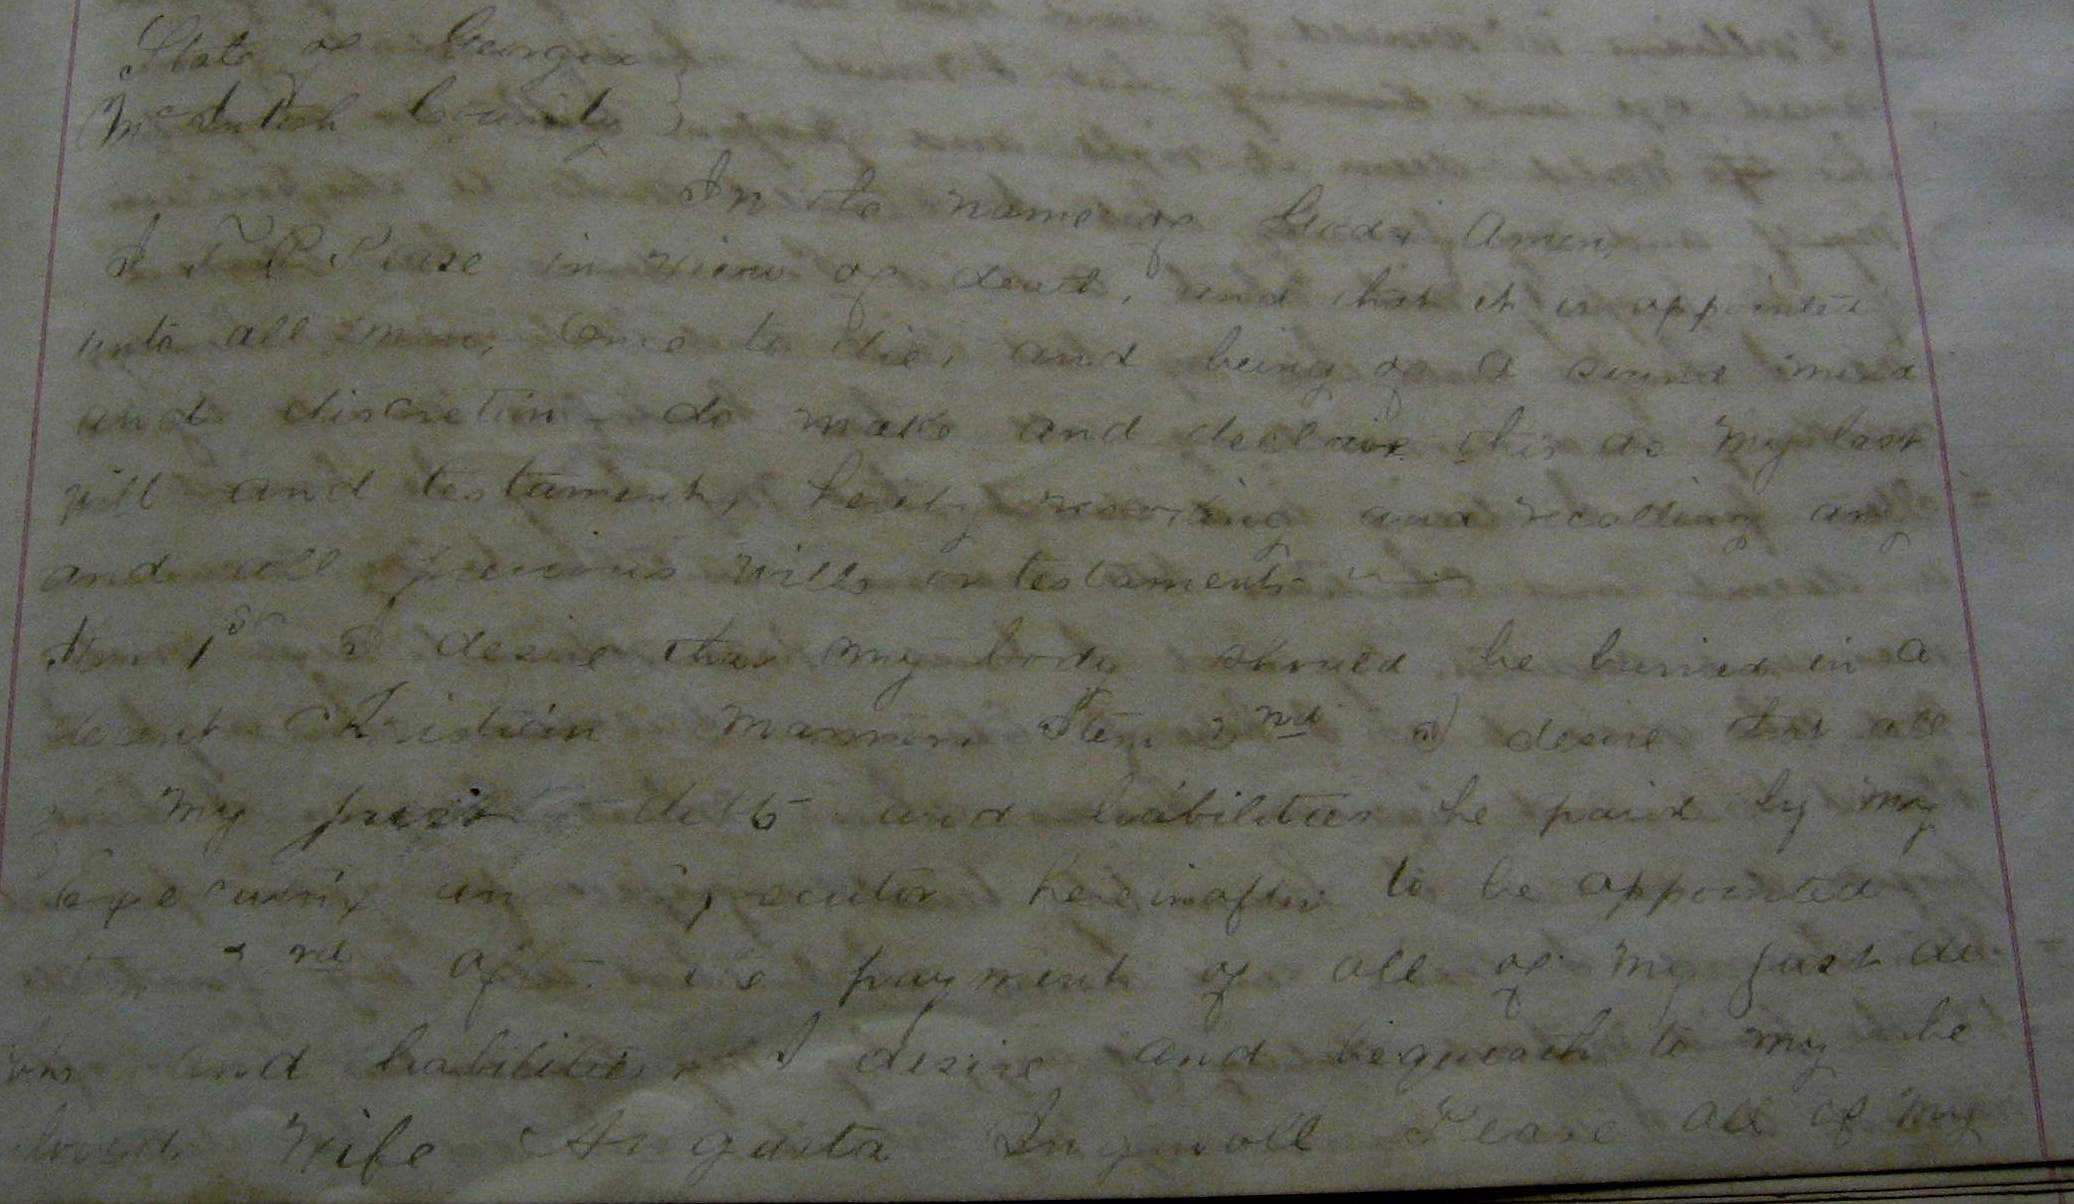 State of Georgia }
McIntosh County }
In the name of God, Amen,
I T P Pease in view of death, and that it is appointed
unto all men, once to die, and being of a sound mind
and discretion - do make and declair this as my last
will and testament, hereby revoking and recalling any
and all previous wills or testaments
Item 1st I desire that my body should be buried in a
decent Christian manner. Item 2nd I desire that all
my just debts and liabilities be paid by my
Executrix and Executor hereinafter to be appointed
Item 3rd after the payment of all of my just de
bts and liabilities, I desire and bequeath to my be
loved Wife Augusta Ingersoll Pease all of my